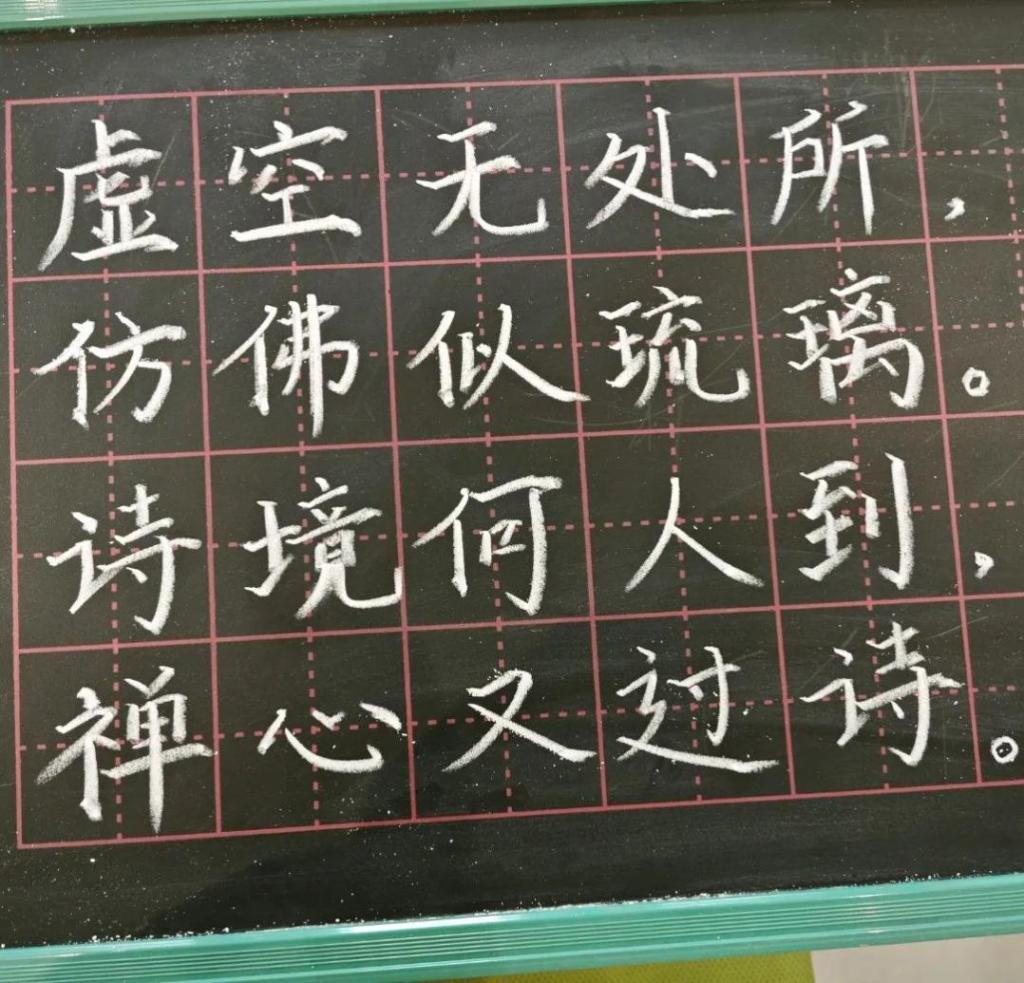 虚空无处所，
仿佛似琉璃。
诗境何人到，
禅心又过诗。